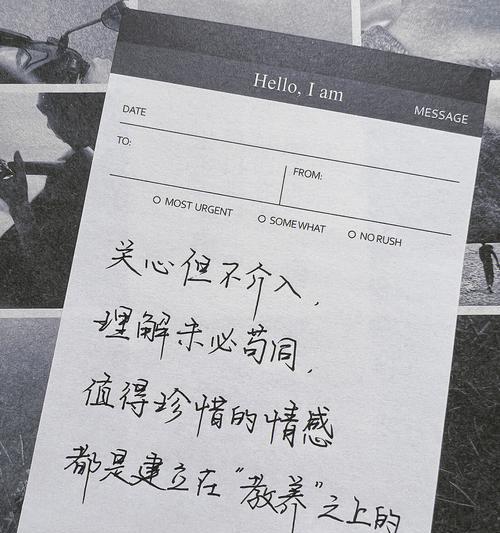 Hello, I am
MESSAGE
DATE
TO:
FROM:
MOST URGENT
SOMEWHAT
NO RUSH
关心但不介入,
理解未必苟同,
值得珍惜的情感
都是建立在“教养”之上的